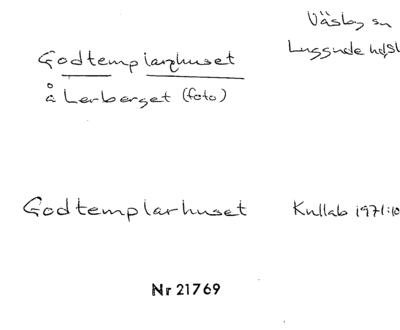 Väsby sn
Luggude hd, Sk
Godtemplarhuset
å Lerberget (foto)
Godtemplarhuset
Kullab 1971:10
Nr 21769